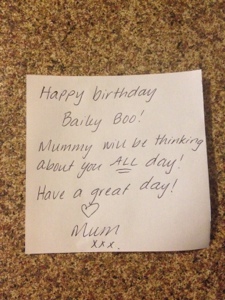 Happy birthday
Baiky Boo!
Mummy will be thinking
about you ALL day!
Have a great day!
♡
Mum
xxx.